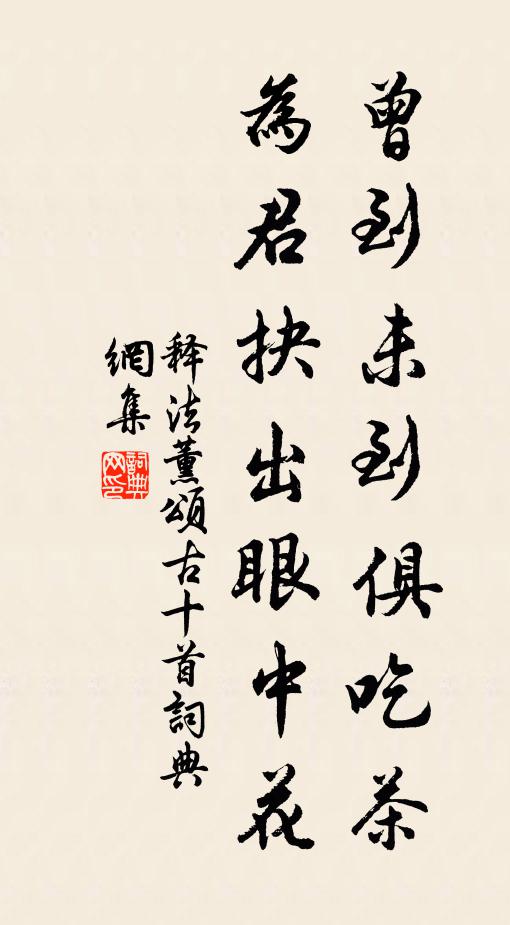 曾到未到俱吃茶
為君抉出眼中花
释法薰頌古十首詞典
網集
詞典
网印